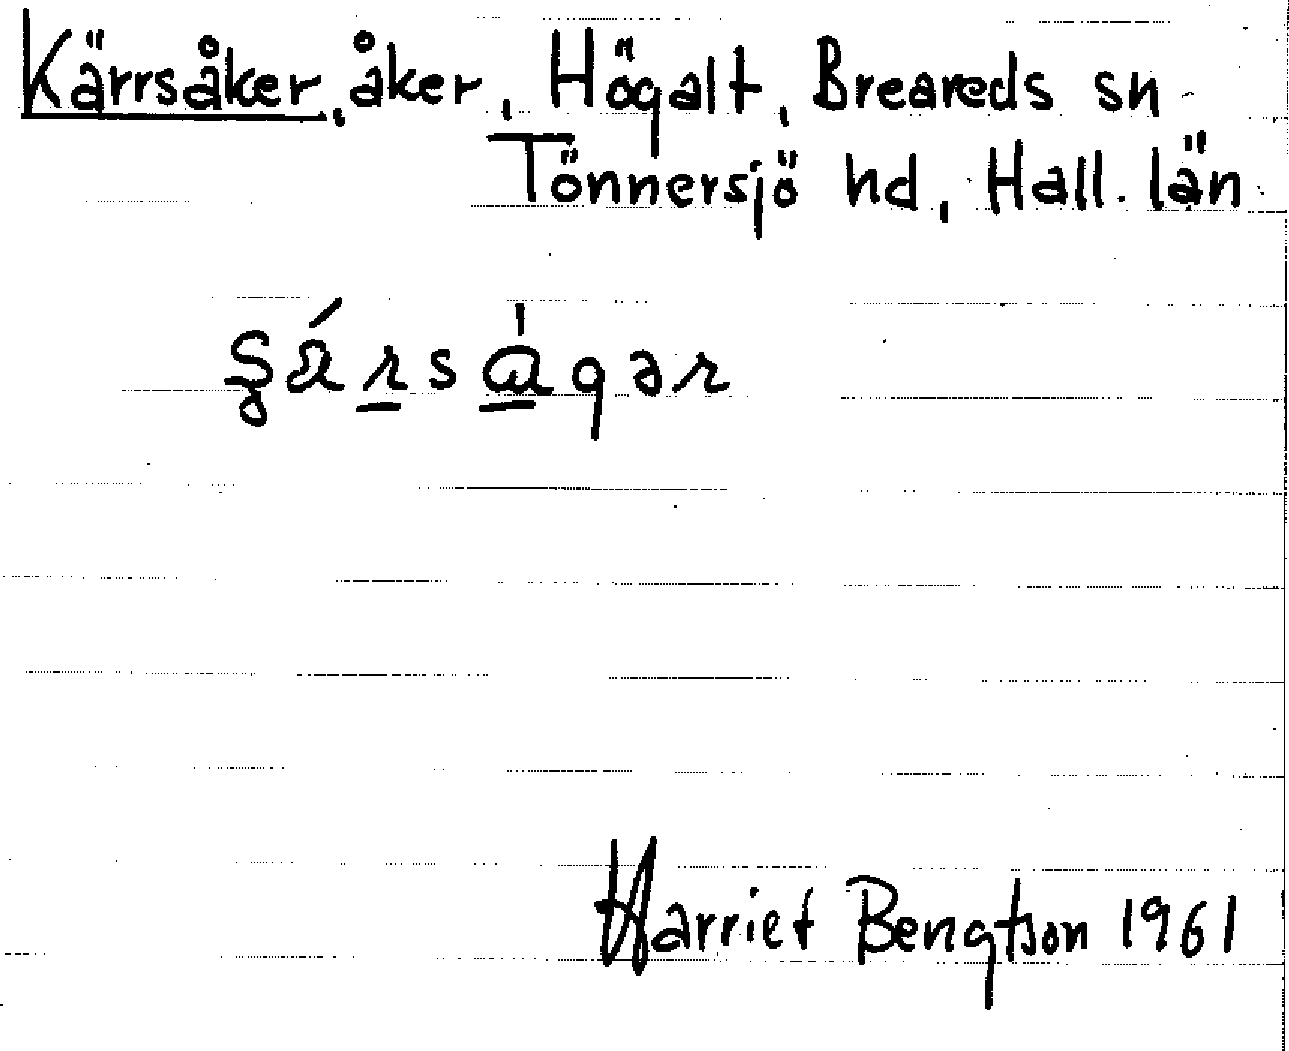 Kärrsåker, åker, Högalt, Breareds sn
Tönnersjö hd, Hall. län
Harriet Bengtson 1961